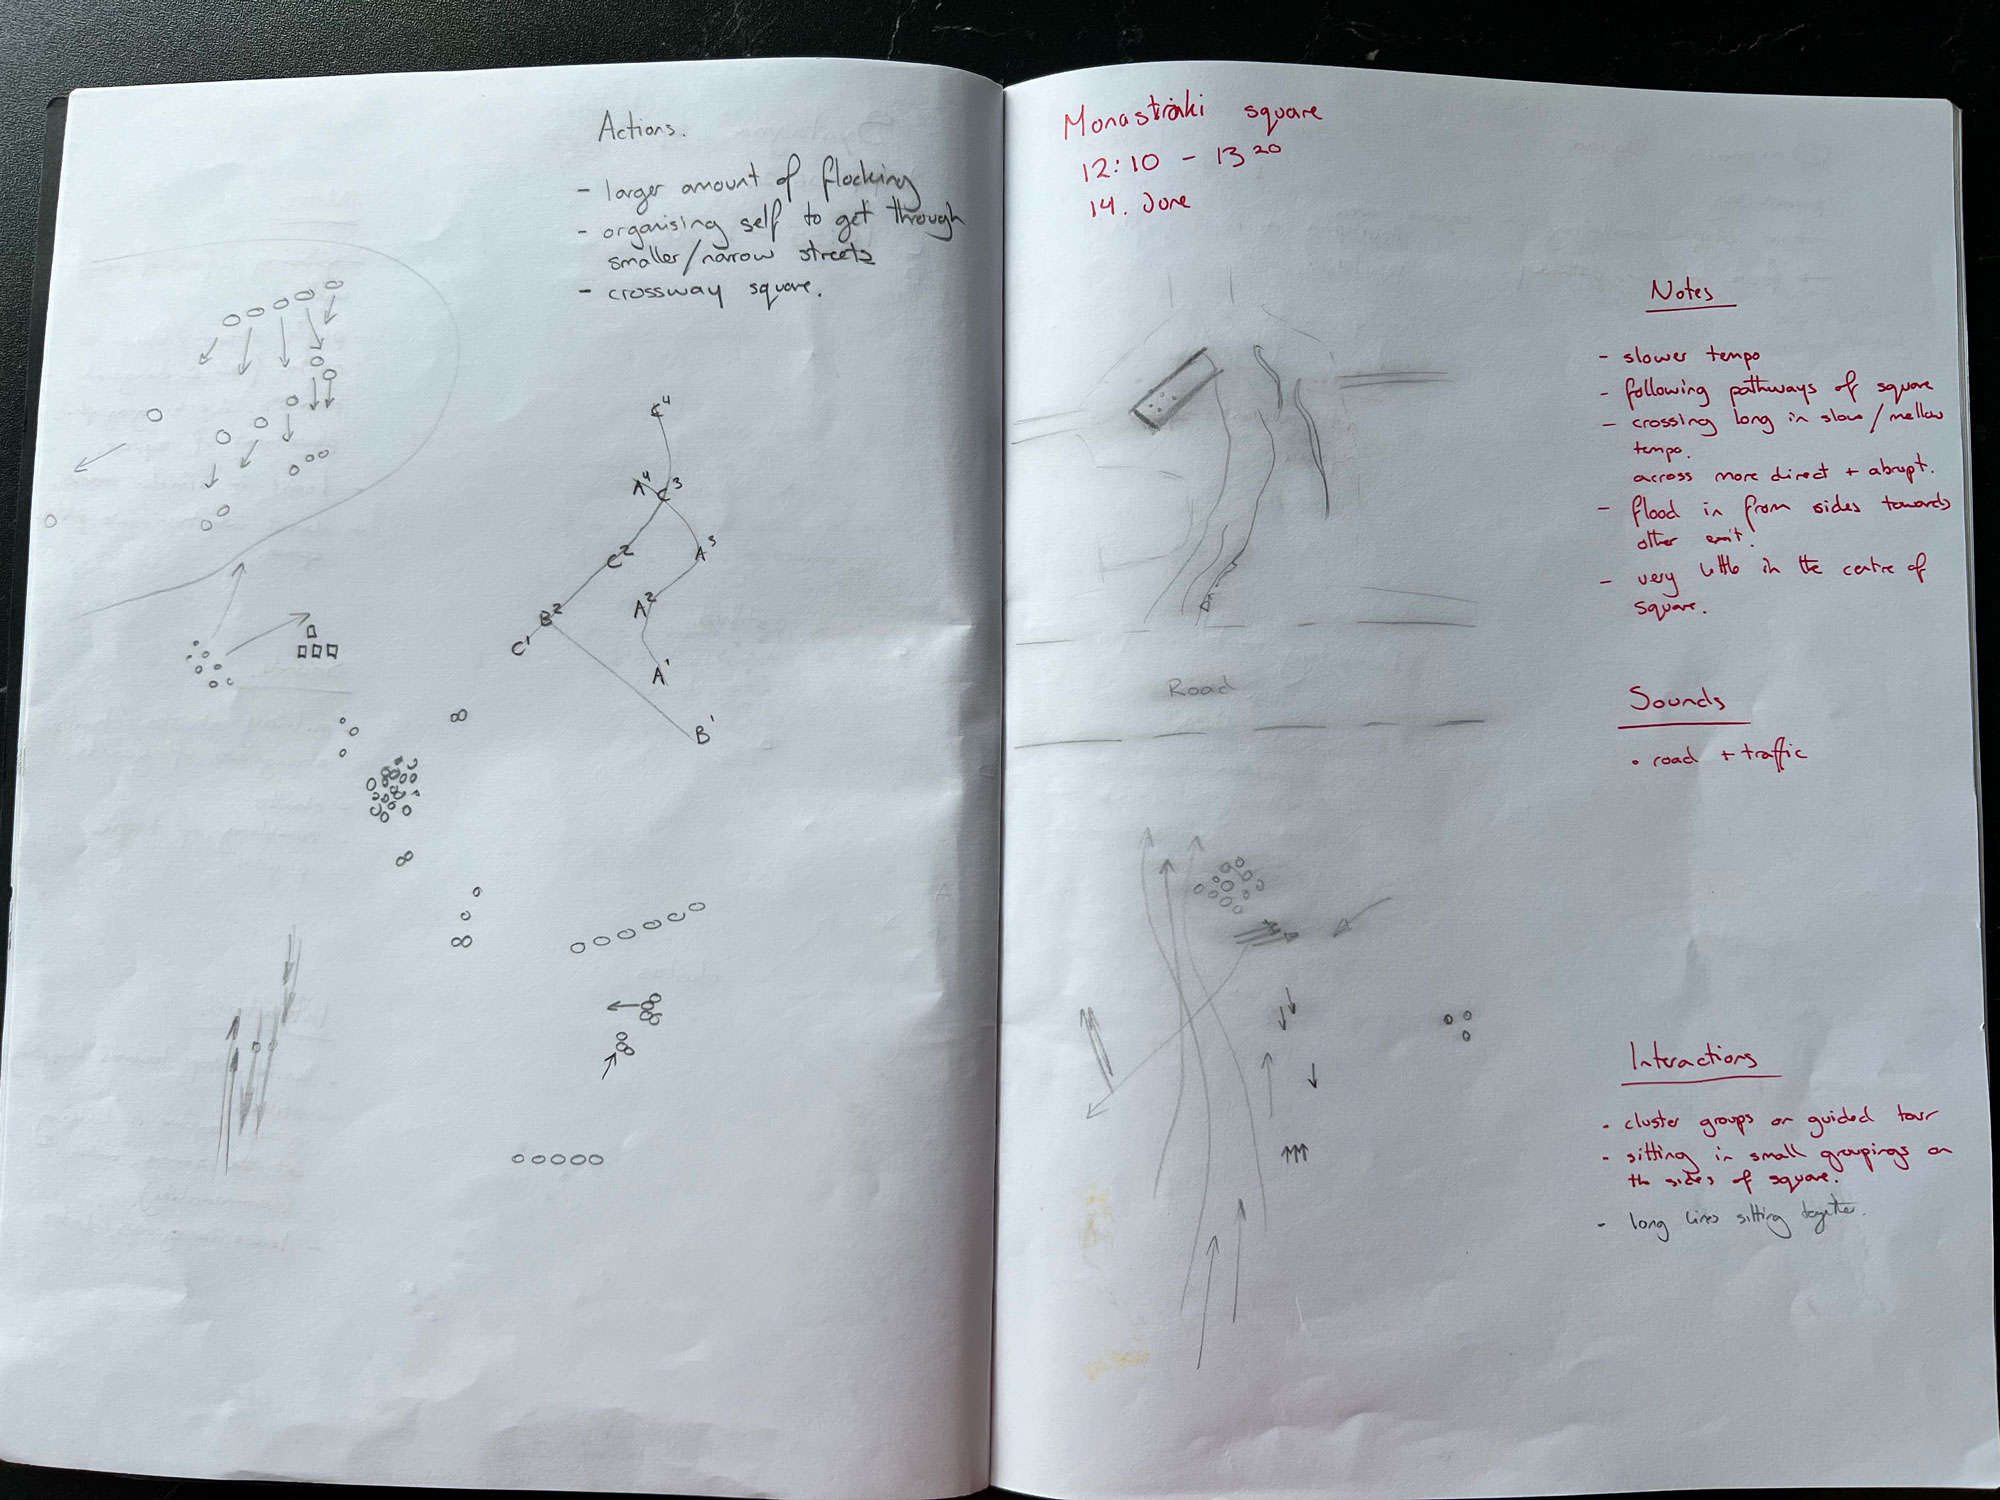 Actions.
- larger amount of flocking
- organising self to get through
smaller/narrow streets
- crossway square.
C4
A4
C3
C2
A3
B2
A2
C1
A1
B1
Monastiraki square
12:10 - 13 20
14. June
Notes
- slower tempo
- following pathways of square
- crossing long in slow/mellow
tempo.
across more direct + abrupt.
- flood in from sides towards
other exit!
- very little in the centre of
square.
Road
Sounds
• road + traffic
Interactions
- cluster groups on guided tour
- sitting in small groupings on
the sides of square.
- long lines sitting together.